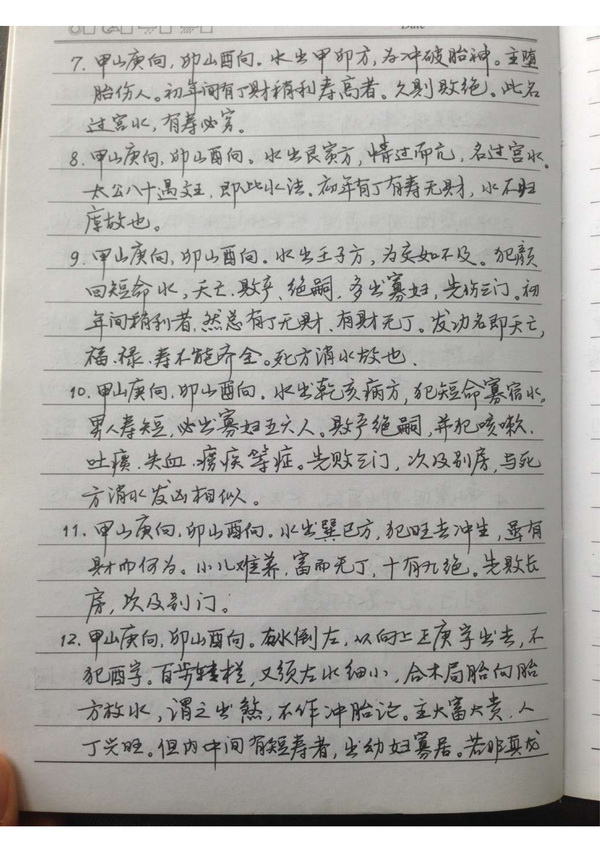 7. 甲山庚向,卯山酉向。水出甲卯方,为冲破胎神。主堕
胎伤人。初年间有丁财稍利寿高者。久则败绝。此名
过宫水,有寿必穷。
8. 甲山庚向,卯山酉向。水出艮寅方,情过而亢,名过宫水。
太公八十遇文王,即此水法。初年有丁有寿无财,水不归
库故也。
9. 甲山庚向,卯山酉向。水出壬子方,为交如不及。犯颜
回短命水,夭亡、败产、绝嗣,多出寡妇,先伤三门。初
年间稍利者,然总有丁无财、有财无丁。发功名即夭亡,
福.禄.寿不能齐全。死方消水故也.
10. 甲山庚向,卯山酉向。水出乾亥病方,犯短命寡宿水。
男人寿短,必出寡妇五六人。败产绝嗣,并犯咳嗽.
吐痰.失血.痨疾等症。先败三门,次及别房,与死
方消水发凶相似。
11. 甲山庚向,卯山酉向。水出巽巳方,犯旺去冲生,虽有
财而何为。小儿难养.富而无丁,十有九绝。先败长
房,次及别门。
12. 甲山庚向,卯山酉向。右水倒左,从向上正庚字出去,不
犯酉字。百步转栏,又须左水细小,合木局胎向胎
方放水,谓之出煞,不作冲胎论。主大富大贵,人
丁兴旺。但内中间有短寿者,出幼妇寡居。若非真龙